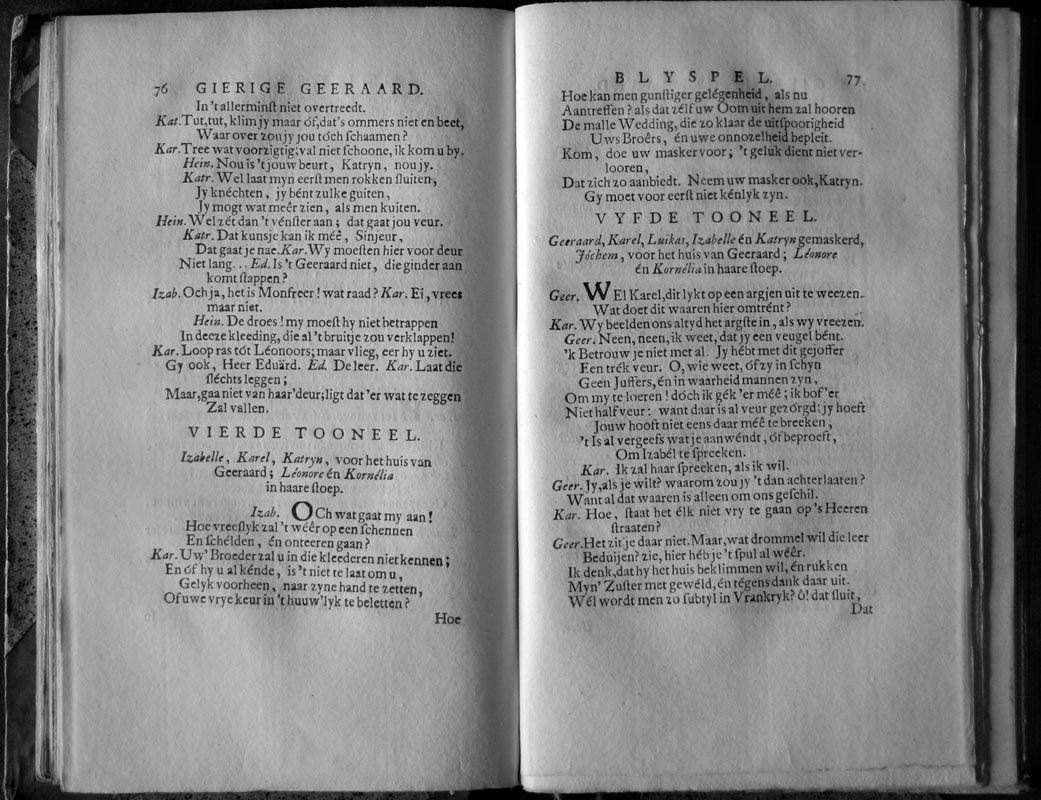 76 GIERIGE GEERAARD.
In 't allerminſt niet overtreedt.
Kat. Tut, tut, klim jy maar óf, dat's ommers niet en beet,
Waar over zou jy jou tóch ſchaamen?
Kar. Tree wat voorzigtig; val niet ſchoone, ik kom u by.
Hein. Nou is 't jouw beurt, Katryn, nou jy.
Katr. Wel laat myn eerſt men rokken ſluiten,
Jy knéchten, jy bént zulke guiten,
Jy mogt wat meêr zien, als men kuiten.
Hein. Wel zét dan 't vénſter aan; dat gaat jou veur.
Katr. Dat kunsje kan ik méê, Sinjeur,
Dat gaat je nae. Kar. Wy moeſten hier voor deur
Niet lang... Ed. Is 't Geeraard niet, die ginder aan
komt ſtappen?
Izab. Och ja, het is Monfreer! wat raad? Kar. Ei, vrees
maar niet.
Hein. De droes! my moeſt hy niet betrappen
In deeze kleeding, die al 't bruitje zou verklappen!
Kar. Loop ras tót Léonoors; maar vlieg, eer hy u ziet.
Gy ook, Heer Eduärd. Ed. De leer. Kar. Laat die
ſléchts leggen;
Maar, gaa niet van haar' deur; ligt dat 'er wat te zeggen
Zal vallen.
VIERDE TOONEEL.
Izabelle, Karel, Katryn, voor het huis van
Geeraard; Léonore én Kornélia
in haare ſtoep.
Izab. OCh wat gaat my aan!
Hoe vreeſlyk zal 't wéêr op een ſchennen
En ſchélden, én onteeren gaan?
Kar. Uw' Broeder zal u in die kleederen niet kennen;
En óf hy u al kénde, is 't niet te laat om u,
Gelyk voorheen, naar zyne hand te zetten,
Of uwe vrye keur in 't huuw'lyk te beletten?
Hoe
BLYSPEL. 77
Hoe kan men gunſtiger gelégenheid, als nu
Aantreffen? als dat zélf uw Oom uit hem zal hooren
De malle Wedding, die zo klaar de uitſpoorigheid
Uws Broêrs, én uwe onnozelheid bepleit.
Kom, doe uw masker voor; 't geluk dient niet ver-
looren,
Dat zich zo aanbiedt. Neem uw masker ook, Katryn.
Gy moet voor eerſt niet kénlyk zyn.
VYFDE TOONEEL.
Geeraard, Karel, Luikas, Izabelle én Katryn gemaskerd,
Jóchem, voor het huis van Geeraard; Léonore
én Kornélia in haare ſtoep.
Geer. WEl Karel, dit lykt op een argjen uit te weezen.
Wat doet dit waaren hier omtrént?
Kar. Wy beelden ons altyd het argſte in, als wy vreezen.
Geer. Neen, neen, ik weet, dat jy een veugel bént.
'k Betrouw je niet met al. Jy hébt met dit gejoffer
Een trék veur. O, wie weet, óf zy in ſchyn
Geen Juffers, én in waarheid mannen zyn,
Om my te loeren! dóch ik gék 'er méê; ik bof 'er
Niet half veur: want daar is al veur gezórgd; jy hoeft
Jouw hooft niet eens daar méê te breeken,
't Is al vergeefs wat je aanwéndt, óf beproeft,
Om Izabél te ſpreeken.
Kar. Ik zal haar ſpreeken, als ik wil.
Geer. Jy, als je wilt? waarom zou jy 't dan achterlaaten?
Want al dat waaren is alleen om ons geſchil.
Kar. Hoe, ſtaat het élk niet vry te gaan op 's Heeren
ſtraaten?
Geer. Het zit je daar niet. Maar, wat drommel wil die leer
Beduijen? zie, hier héb je 't ſpul al wéêr.
Ik denk, dat hy het huis beklimmen wil, én rukken
Myn' Zuſter met gewéld, én tégens dank daar uit.
Wél wordt men zo ſubtyl in Vrankryk? ô! dat ſluit,
Dat